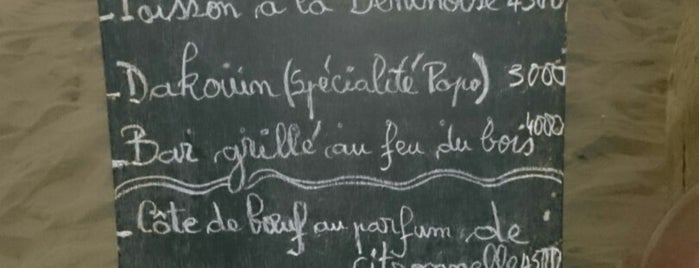 - Poisson à la Béninoise 4500
- Dakouin (Spécialité Popo) 3000
- Bar grillé au feu du bois 4000
- Côte de bœuf au parfum de
citronnelle 4500